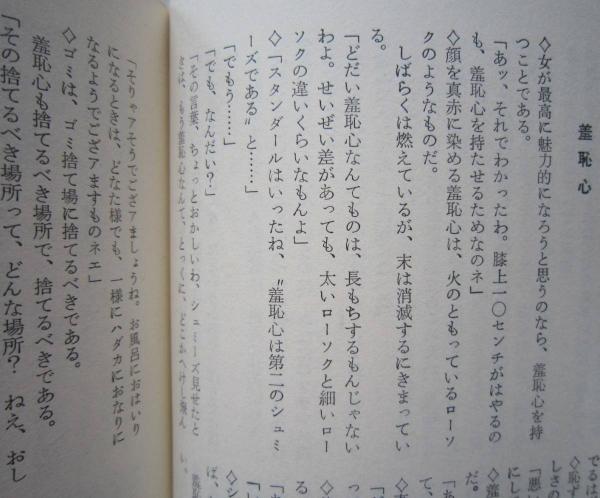 羞恥心
◇女が最高に魅力的になろうと思うのなら、羞恥心を持
つことである。
「あッ、それでわかったわ。膝上一〇センチがはやるの
も、羞恥心を持たせるためなのネ」
◇顔を真赤に染める羞恥心は、火のともっているローソ
クのようなものだ。
しばらくは燃えているが、末は消滅するにきまってい
る。
「どだい羞恥心なんてものは、長もちするもんじゃない
わよ。せいぜい差があっても、太いローソクと細いロー
ソクの違いくらいなもんよ」
◇「スタンダールはいったね、〝羞恥心は第二のシュミ
ーズである〟と……」
「でもう……」
「でも、なんだい？」
「その言葉、ちょっとおかしいわ、シュミーズ見せたと
きは、もう羞恥心なんて、とっくに、どこかへけし飛ん
「そりゃアそうでござアましょうね。お風呂におはいり
になるときは、どなた様でも、一様にハダカにおなりに
なるようでござアますものネエ」
◇ゴミは、ゴミ捨て場に捨てるべきである。
羞恥心も捨てるべき場所で、捨てるべきである。
「その捨てるべき場所って、どんな場所？　ねえ、おし